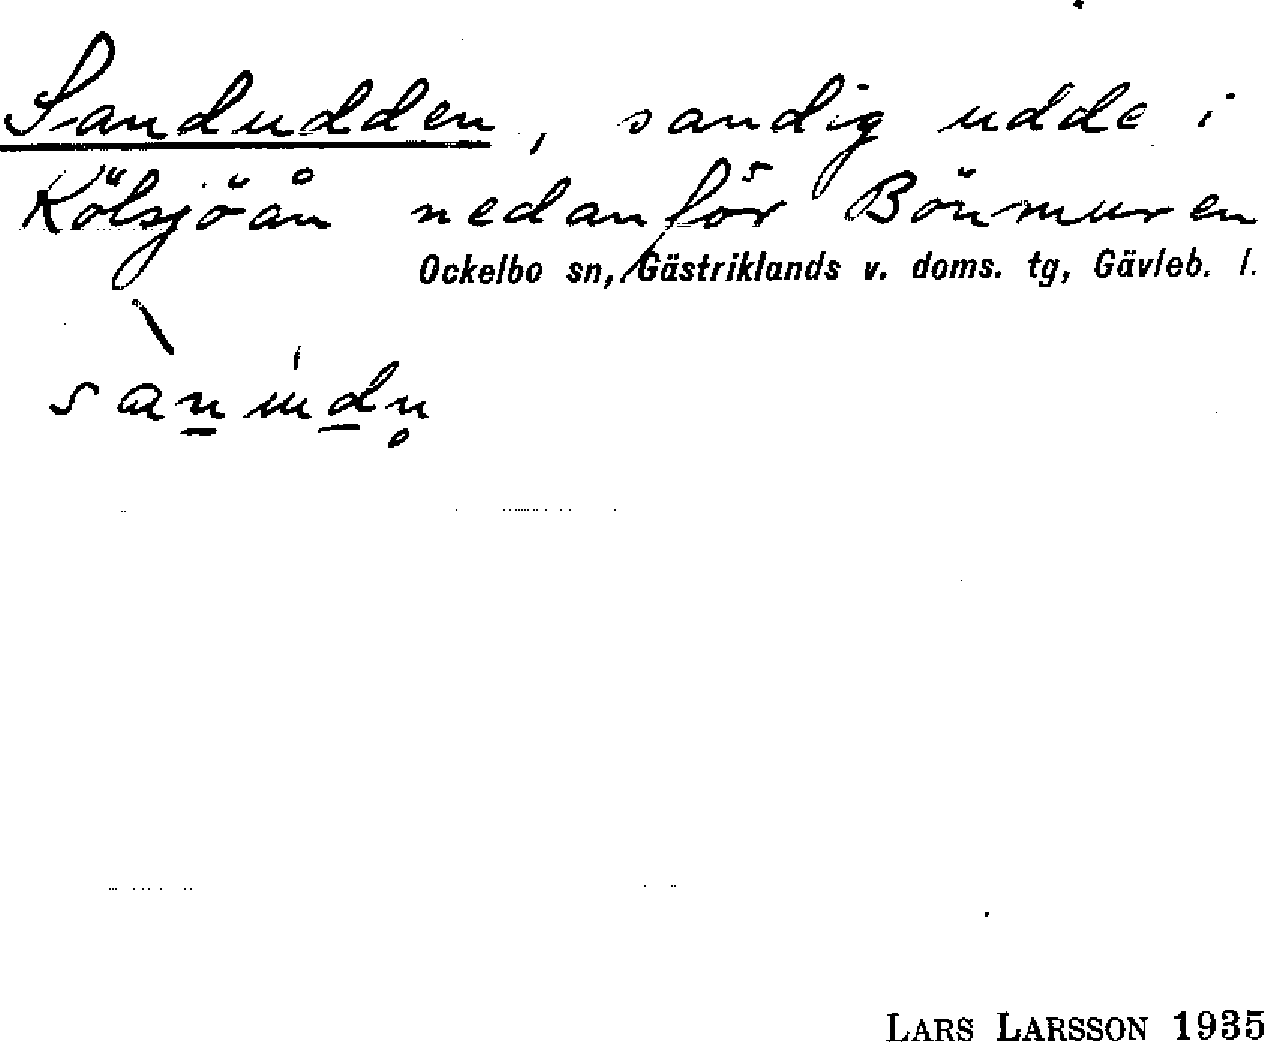 Sandudden, sandig udde i
Kölsjöån nedanför Bönmuren
Ockelbo sn, Gästriklands v. doms. tg, Gävleb. l.
LARS LARSSON 1935